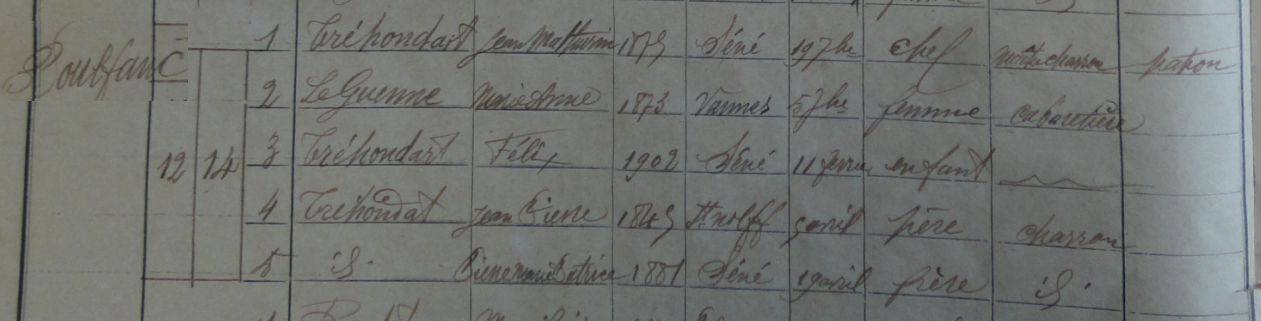 Poulfanc
1 Tréhondart Jean Mathurin 1875 Séné 19 7bre chef maître charron patron
2 Le Guenne Marie Anne 1873 Vannes 5 7bre femme cabaretière
12 14 3 Tréhondart Félix 1902 Séné 11 février enfant
4 Tréhondat Jean Pierre 1849 St Nolff 5 avril père charron
5 id. Pierre Marie Patrice 1881 Séné 19 avril frère id.